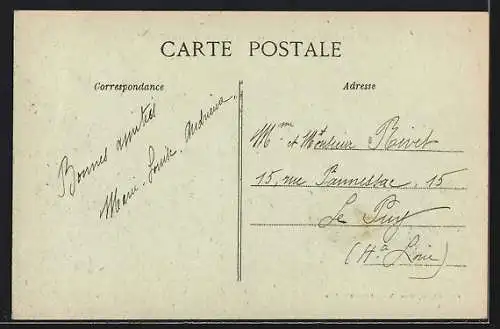 CARTE POSTALE
Correspondance
Bonnes amitiés
Marie-Louise. Andrieux.
Adresse
Mme et Monsieur Rivet
15, rue Pannessac, 15
Le Puy
(Hte Loire)